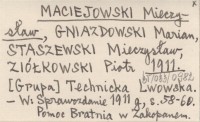 MACIEJOWSKI Mieczy-
sław, GNIAZDOWSKI Marian,
STASZEWSKI Mieczysław,
ZIÓŁKOWSKI Piotr 1911.
[Grupa] Technicka Lwowska.
- W: Sprawozdanie 1911 g, s. 58-60.
Pomoc Bratnia w Zakopanem.